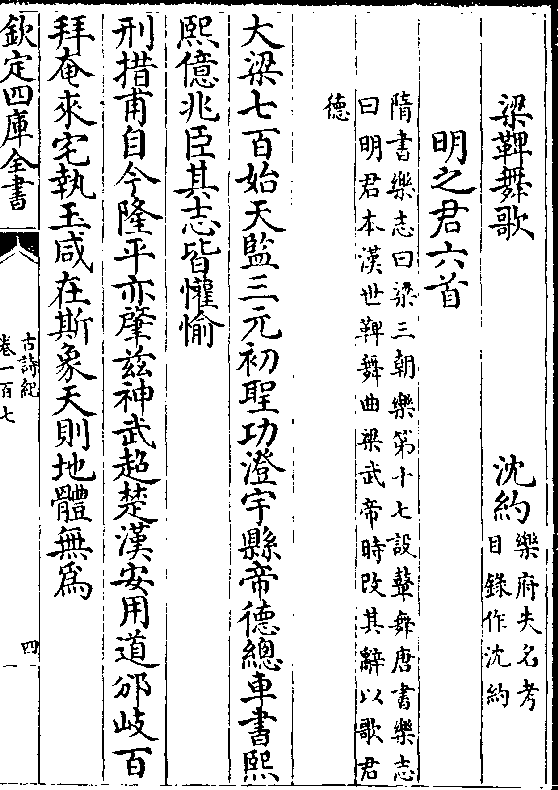 梁鞞舞歌 沈約 樂府失名考
目錄作沈約
明之君六首
隋書樂志曰梁三朝樂第十七設鞞舞唐書樂志
曰明君本漢世鞞舞曲梁武帝時改其辭以歌君
德
大梁七百始天監三元初聖功澄宇縣帝德總車書熙
熙億兆臣其志皆懽愉
刑措甫自今隆平亦肇兹神武超楚漢安用道邠岐百
拜奄來宅執玉咸在斯象天則地體無爲
欽定四庫全書
古詩紀
卷一百七
四